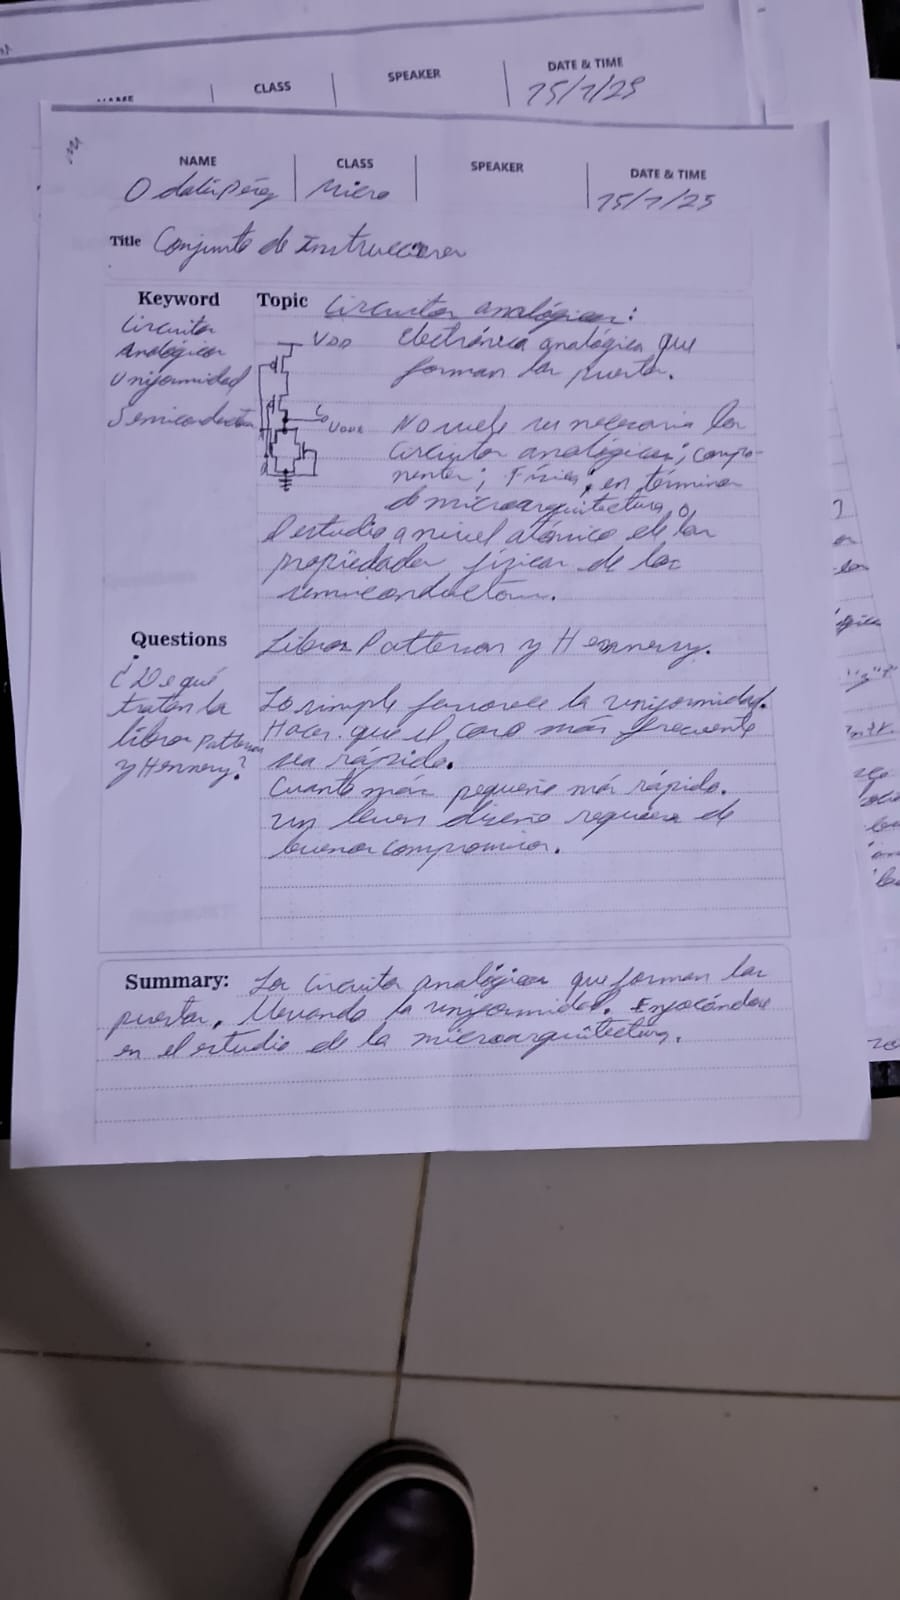 CLASS
SPEAKER
DATE & TIME
15/1/25
NAME
CLASS
SPEAKER
DATE & TIME
Odalis Pérez
Micro
15/1/25
Title Conjunto de Instrucciones
Keyword
Circuitos
Analógicos
Uniformidad
Semiconductores
Topic Circuitos analógicos:
VDD
Vout
Electrónica analógica que
forman las puertas.
No suele ser necesario los
circuitos analógicos; compo-
nentes; Físicos, en términos
de microarquitectura, o
el estudio a nivel atómico de las
propiedades físicas de los
semiconductores.
Questions
¿De qué
tratan los
libros Patterson
y Hennery?
Libros Patterson y Hennery.
Lo simple favorece la uniformidad.
Hacer que el caso más frecuente
sea rápido.
Cuanto más pequeño más rápido.
un buen diseño requiere de
buenos compromisos.
Summary: Los circuitos analógicos que forman las
puertas, llevando la uniformidad. Enfocándose
en el estudio de la microarquitectura.